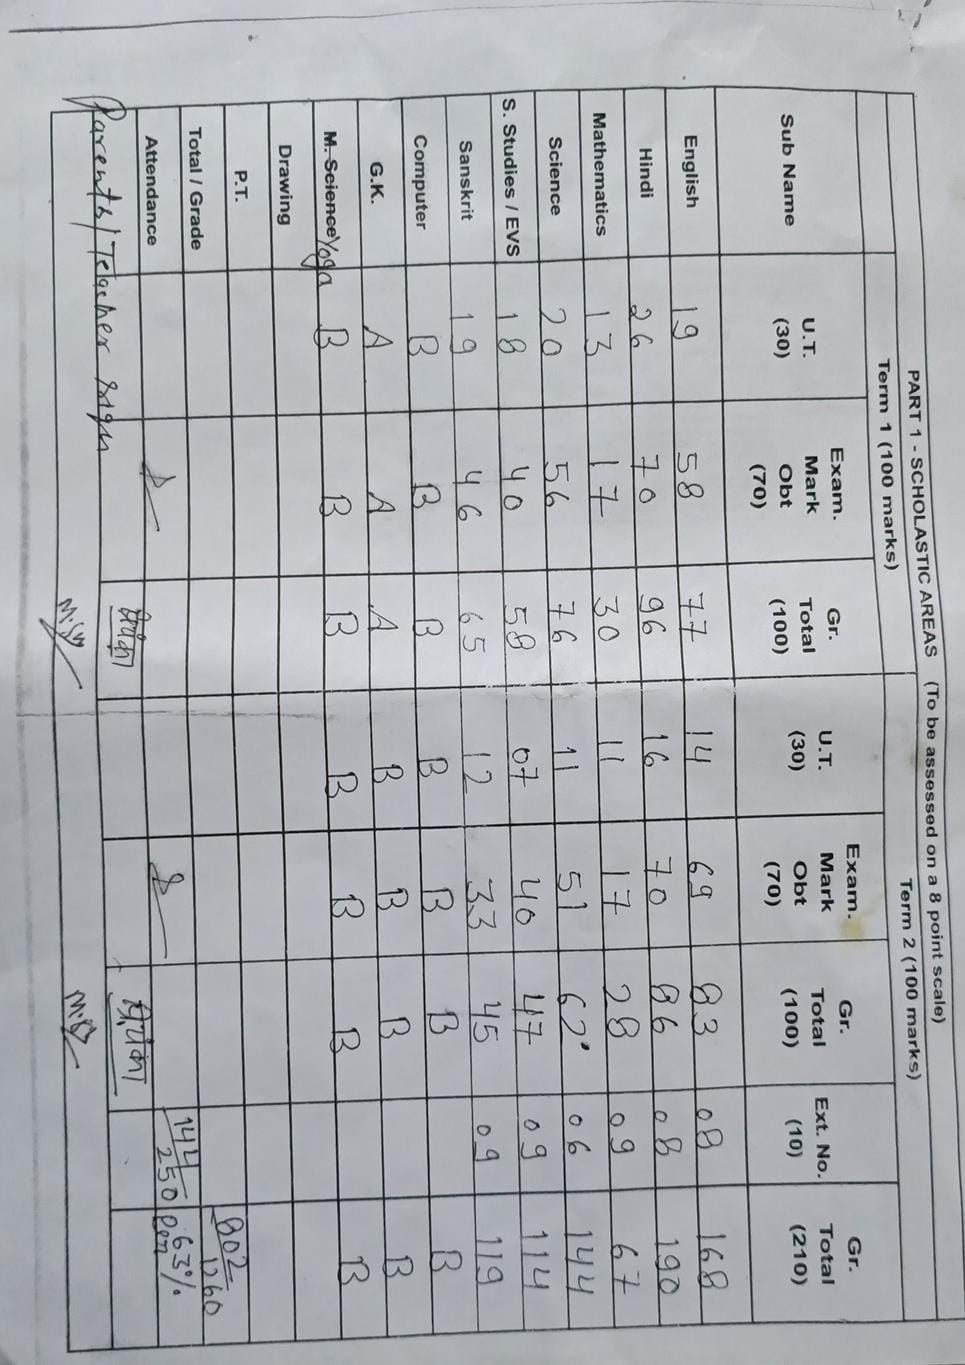 PART 1 - SCHOLASTIC AREAS (To be assessed on a 8 point scale)
Term 1 (100 marks) Term 2 (100 marks)
Sub Name U.T. (30) Exam. Mark Obt (70) Gr. Total (100) U.T. (30) Exam. Mark Obt (70) Gr. Total (100) Ext. No. (10) Gr. Total (210)
English 19 58 77 14 69 83 08 168
Hindi 26 70 96 16 70 86 08 190
Mathematics 13 17 30 11 17 28 09 67
Science 20 56 76 11 51 62 06 144
S. Studies / EVS 18 40 58 07 40 47 09 114
Sanskrit 19 46 65 12 33 45 09 119
Computer B B B B B B B
G.K. A A A B B B B
M. Science Yoga B B B B B B B
Drawing
P.T.
Total / Grade 802/1260
Attendance 144/250 63%
Parents/Teacher sign